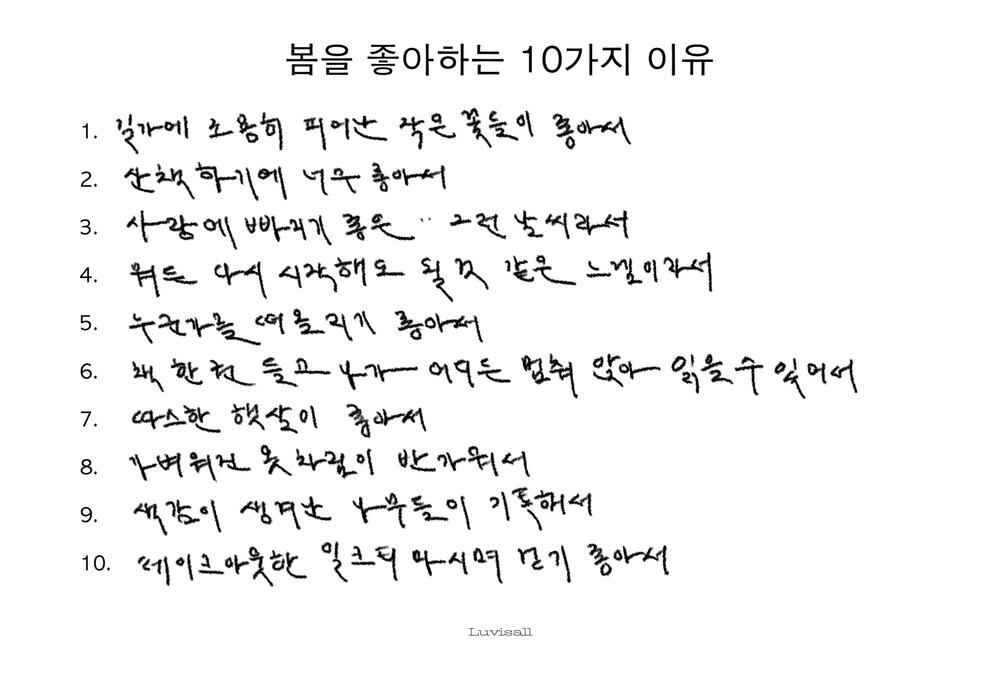 봄을 좋아하는 10가지 이유
1. 길가에 조용히 피어난 작은 꽃들이 좋아서
2. 산책하기에 너무 좋아서
3. 사랑에 빠지기 좋은.. 그런 날씨라서
4. 뭐든 다시 시작해도 될 것 같은 느낌이라서
5. 누군가를 떠올리기 좋아서
6. 책 한 권 들고 나가 어디든 멈춰 앉아 읽을 수 있어서
7. 따스한 햇살이 좋아서
8. 가벼워진 옷차림이 반가워서
9. 색감이 생겨난 나무들이 기특해서
10. 테이크아웃한 밀크티 마시며 걷기 좋아서
Luvisall